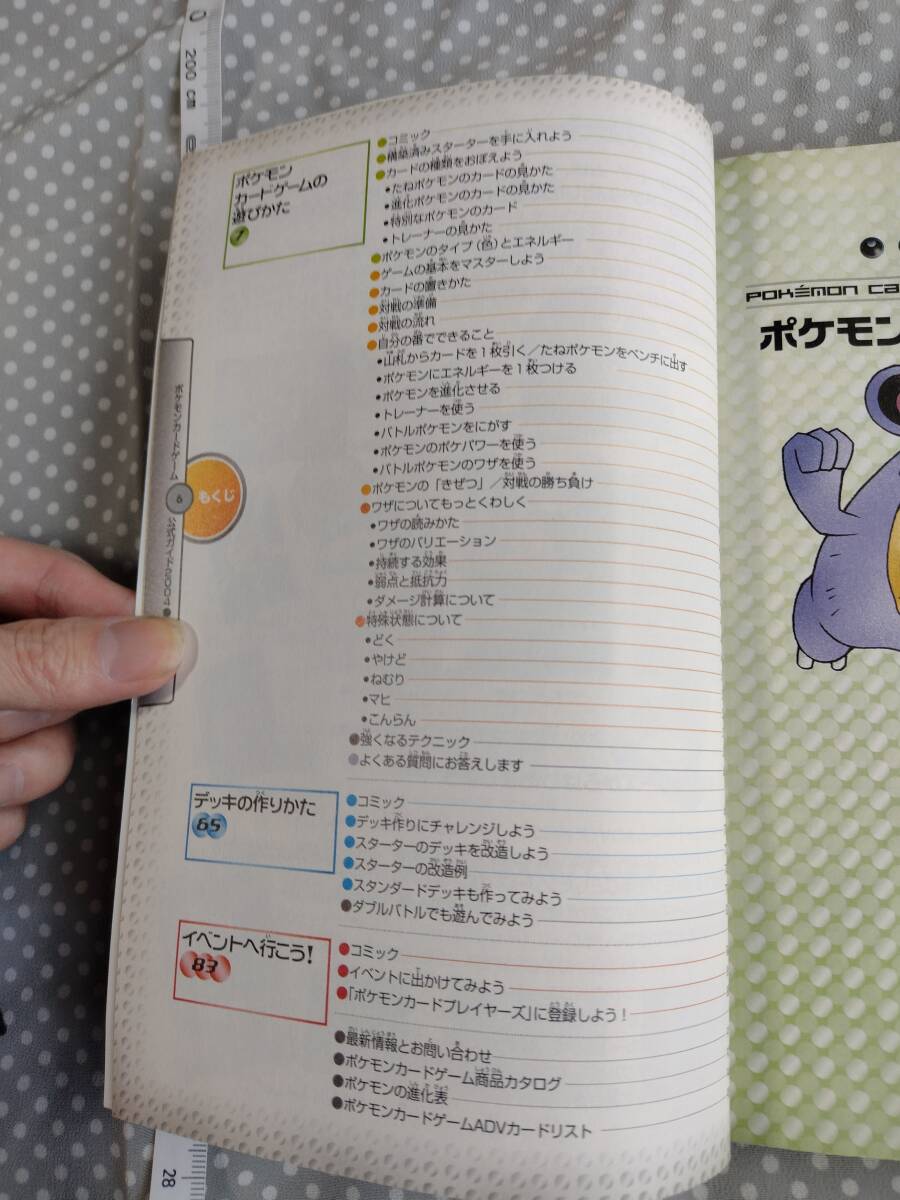 ポケモン
カードゲームの
遊びかた
●コミック
●構築済みスターターを手に入れよう
●カードの種類をおぼえよう
•たねポケモンのカードの見かた
•進化ポケモンのカードの見かた
•特別なポケモンのカード
•トレーナーの見かた
●ポケモンのタイプ(色)とエネルギー
●ゲームの基本をマスターしよう
●カードの置きかた
●対戦の準備
●対戦の流れ
●自分の番でできること
•山札からカードを1枚引く/たねポケモンをベンチに出す
•ポケモンにエネルギーを1枚つける
•ポケモンを進化させる
•トレーナーを使う
•バトルポケモンをにがす
•ポケモンのポケパワーを使う
•バトルポケモンのワザを使う
●ポケモンの「きぜつ」/対戦の勝ち負け
●ワザについてもっとくわしく
•ワザの読みかた
•ワザのバリエーション
•持続する効果
•弱点と抵抗力
•ダメージ計算について
●特殊状態について
•どく
•やけど
•ねむり
•マヒ
•こんらん
●強くなるテクニック
●よくある質問にお答えします
デッキの作りかた
65
●コミック
●デッキ作りにチャレンジしよう
●スターターのデッキを改造しよう
●スターターの改造例
●スタンダードデッキも作ってみよう
●ダブルバトルでも遊んでみよう
イベントへ行こう!
83
●コミック
●イベントに出かけてみよう
●「ポケモンカードプレイヤーズ」に登録しよう!
●最新情報とお問い合わせ
●ポケモンカードゲーム商品カタログ
●ポケモンの進化表
●ポケモンカードゲームADVカードリスト
ポケモンカードゲーム
6
公式ガイド2004
もくじ
POKÉMON CA
ポケモン
200 cm
28